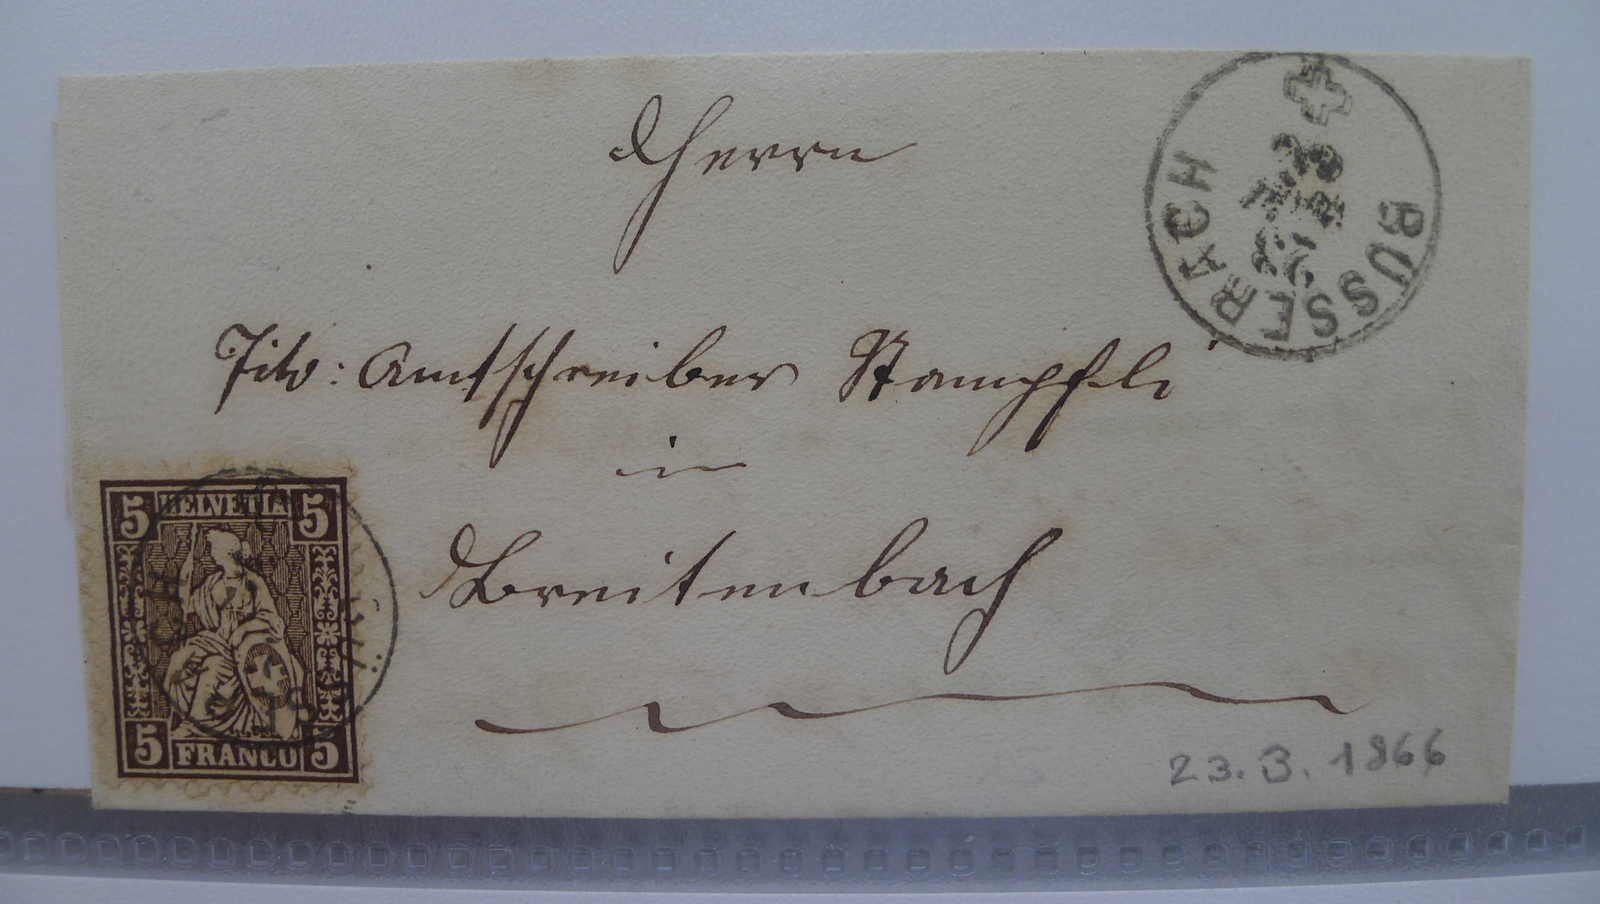 Herrn
Titv: Amtschreiber Stampfli
in
Breitenbach
BUSSERACH
5 HELVETIA 5
5 FRANCO 5
23.3.1866